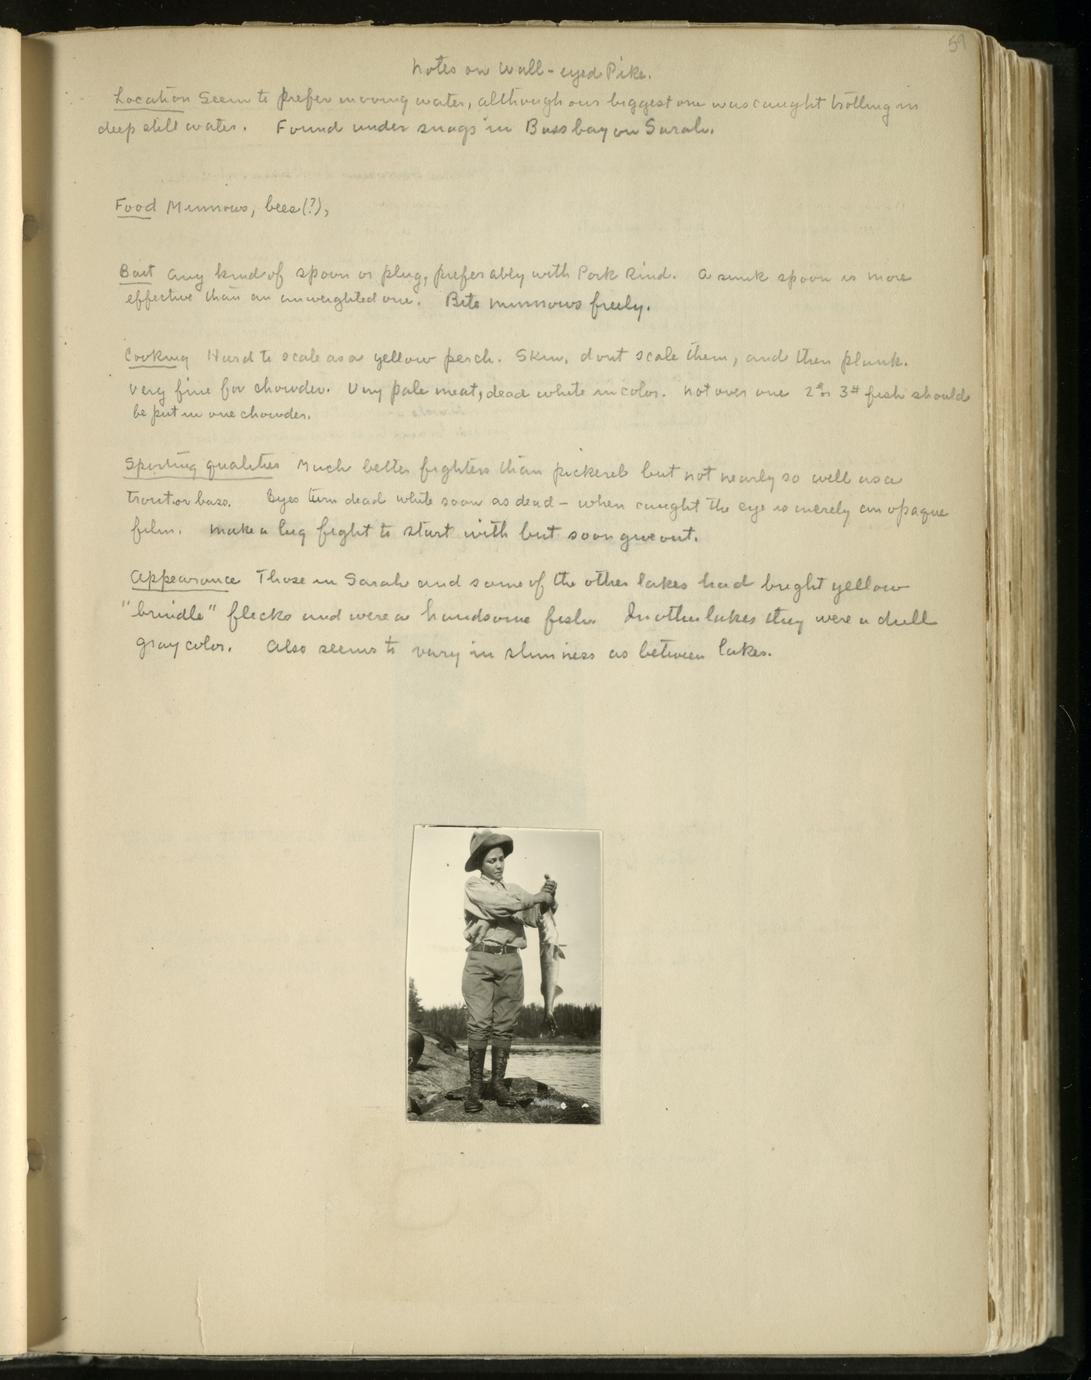 59
Notes on Wall-eyed Pike.
Location Seem to prefer moving water, although our biggest one was caught trolling in
deep still water. Found under snags in Bass bay on Sarah.
Food Minnows, bees(?),
Bait Any kind of spoon or plug, preferably with Pork Rind. A sunk spoon is more
effective than an unweighted one. Bite minnows freely.
Cooking Hard to scale as a yellow perch. Skin, dont scale them, and then plank.
Very fine for chowder. Very pale meat, dead white in color. Not over one 2# or 3# fish should
be put in one chowder.
Sporting qualities Much better fighters than pickerel but not nearly so well as a
trout or bass. Eyes turn dead white soon as dead - when caught the eye is merely an opaque
film. Make a big fight to start with but soon give out.
Appearance Those in Sarah and some of the other lakes had bright yellow
"brindle" flecks and were a handsome fish. In other lakes they were a dull
gray color. Also seems to vary in sliminess as between lakes.